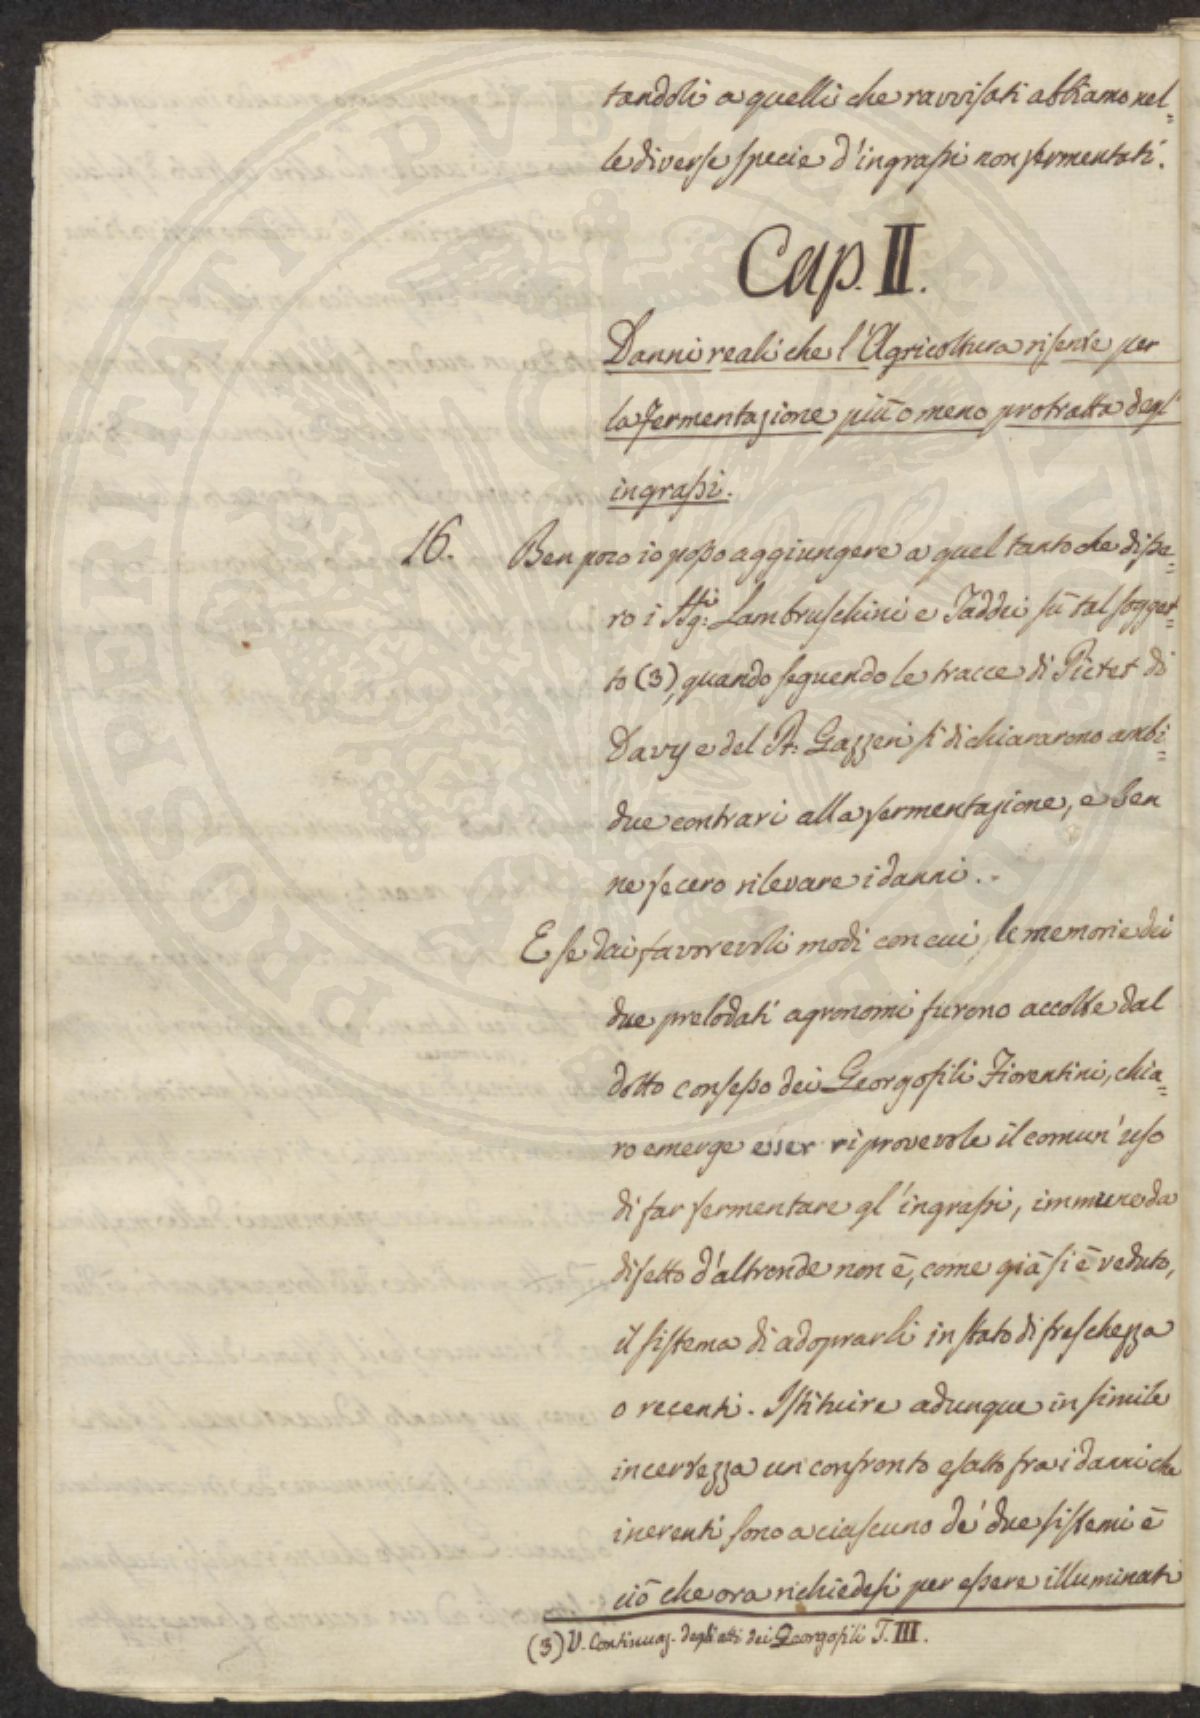 tandoli a quelli che ravvisati abbiamo nel=
le diverse specie d'ingrassi non fermentati.
Cap. II.
Danni reali che l'Agricoltura risente per
la fermentazione più o meno protratta degl'
ingrassi.
16. Ben poco io posso aggiungere a quel tanto che disse=
ro i Sigg:ri Lambruschini e Taddei sù tal sogget=
to (3), quando seguendo le tracce di Pictet di
Davy e del Pr: Gazzeri si dichiararono ambi=
due contrari alla fermentazione, e ben
ne fecero rilevare i danni.
E se dai favorevoli modi con cui le memorie dei
due prelodati agronomi furono accolte dal
dotto consesso dei Georgofili Fiorentini, chia=
ro emerge esser riprovevole il comun' uso
di far fermentare gl'ingrassi, immune da
difetto d'altronde non è, come già si è veduto,
il sistema di adoprarli in stato di freschezza
o recenti. Istituire adunque in simile
incertezza un confronto esatto fra i danni che
inerenti sono a ciascuno de' due sistemi è
ciò che ora richiedesi per essere illuminati
(3) V. Continuaz. degli atti dei Georgofili T. III.
PROSPERITATI PVBLICAE AVGENDAE